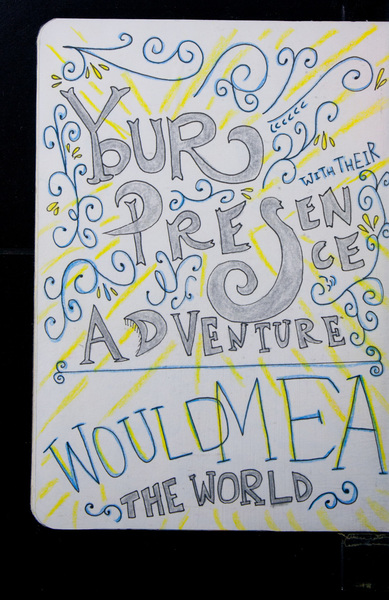 YOUR
PRESENCE
WITH THEIR
ADVENTURE
WOULD MEA
THE WORLD